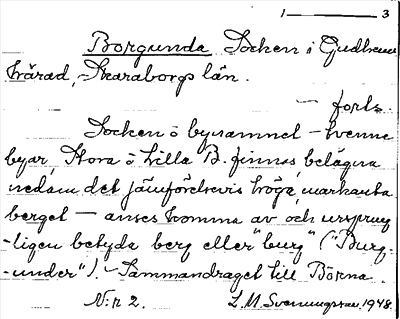 1 — 3
Borgunda Socken i Gudhems
härad, Skaraborgs län.
— forts.
Socken o bynamnet – tvenne
byar, Stora o Lilla B. finnas, belägna
nedom det jämförelsevis höga, markanta
berget — anses komma av och ursprung
-ligen betyda berg eller "burg" ("Burg-
-under"). – Sammandraget till Börna.
N:r 2. L. M. Svenungsson. 1948.